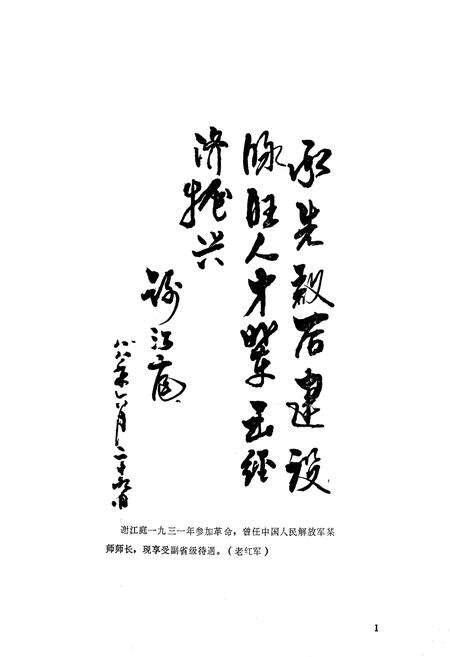 承先启后建设
脉旺人才辈出经
济振兴
谢江庭
八八年六月二十日
谢江庭一九三一年参加革命，曾任中国人民解放军某
师师长，现享受副省级待遇。（老红军）
1